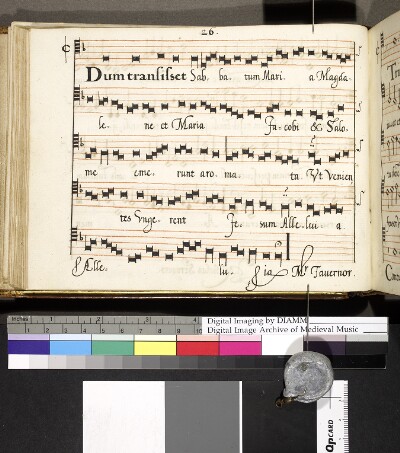 26.
Dum transisset Sab. ba. tum Mari. a Magda.
le. ne et Maria Ja. cobi & Salo.
me eme. runt aro. ma. ta. Vt venien
tes Vnge. rent Je. sum Alle. lui. a
Alle. lu. ia Mr Tavernor.
inches 1 2 3 4
Digital Imaging by DIAMM
Digital Image Archive of Medieval Music
QPCARD